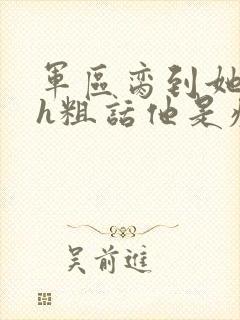 軍區啻到她
h粗話他是
吳前進